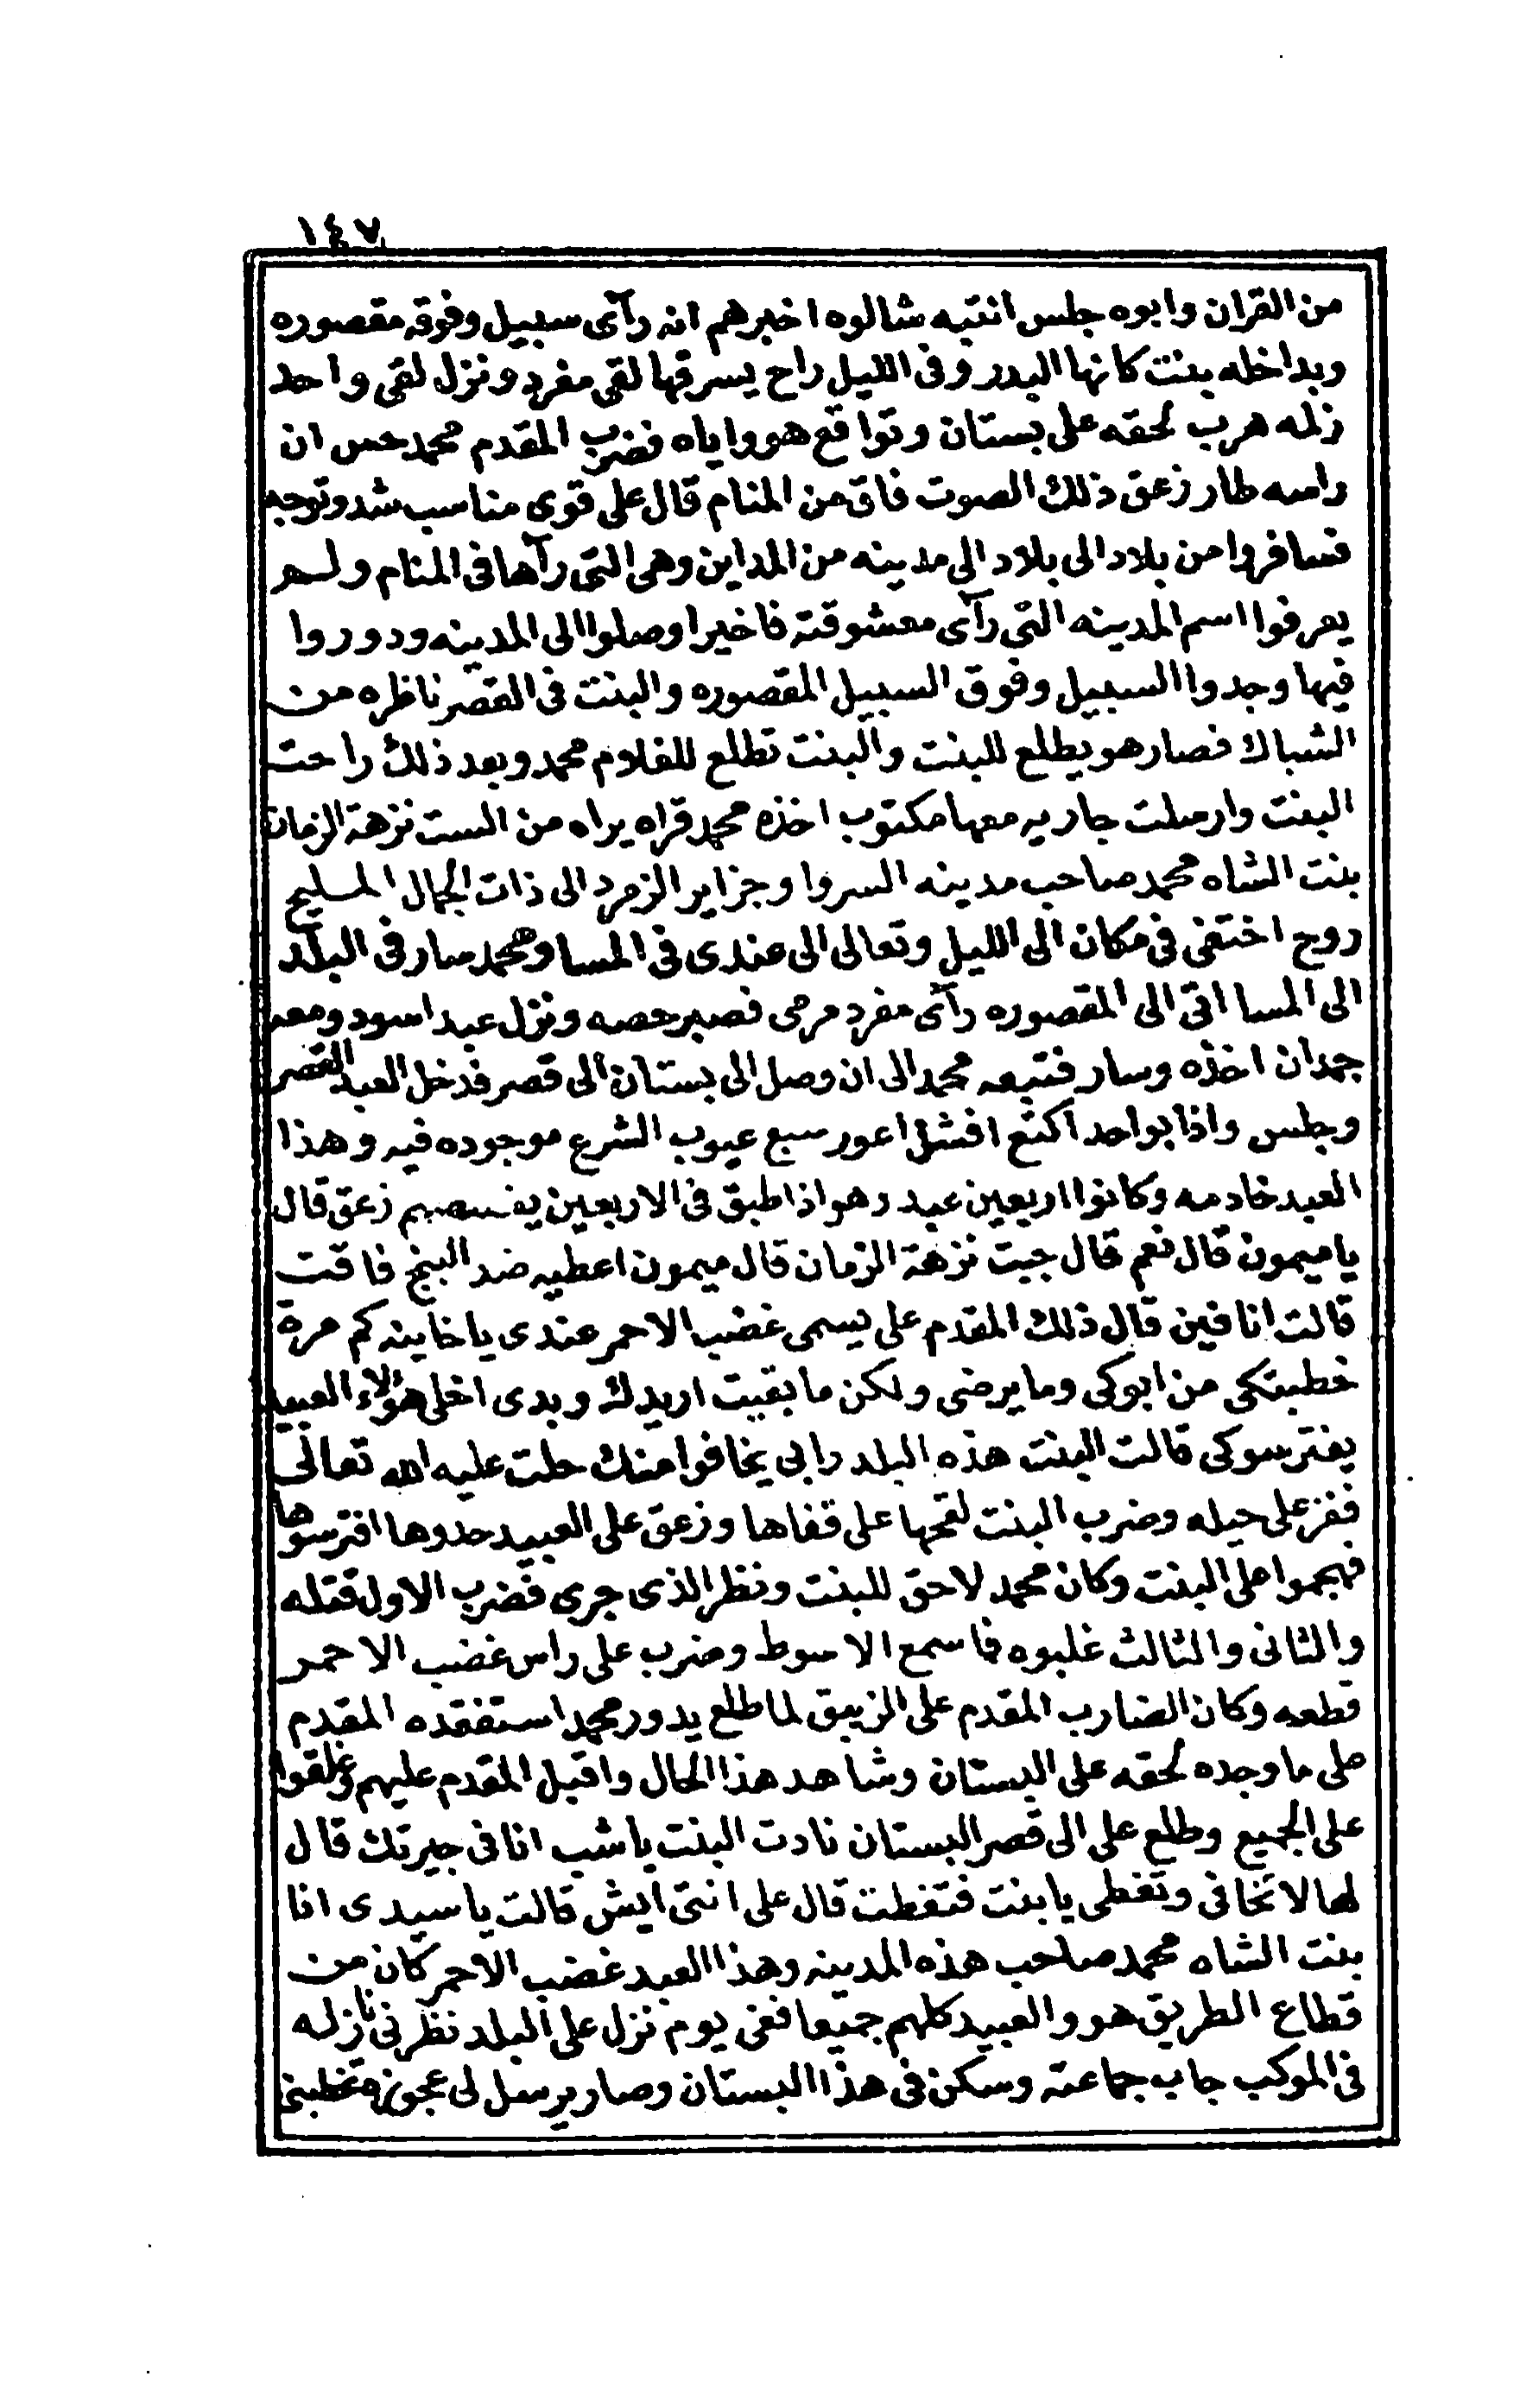 ١٤٧
من القران وابوه جلس انتبه شالوه اخبرهم انه رآى سبيل وفوقه مقصوره
وبداخله بنت كانها البدر وفى الليل راح يسرقها لقى مفرد ونزل لقى واحد
زلمه هرب لحقه على بستان وتواقع هو واياه فضرب المقدم محمد حس ان
راسه طار زعق ذلك الصوت فاق من المنام قال على قوى مناسب شد وتوجه
فسافروا من بلاد الى بلاد الى مدينه من المداين وهى التى رآها فى المنام ولم
يعرفوا اسم المدينه التى رآى معشوقته فاخيرا وصلوا الى المدينه ودوروا
فيها وجدوا السبيل وفوق السبيل المقصوره والبنت فى القصر ناظره من
الشباك فصار هو يطلع للبنت والبنت تطلع للغلام محمد وبعد ذلك راحت
البنت وارسلت جاريه معها مكتوب اخذه محمد قراه يراه من الست نزهة الزمان
بنت الشاه محمد صاحب مدينه السروا وجزاير الزمرد الى ذات الجمال المليح
روح اختفى فى مكان الى الليل وتعالى الى عندى فى المسا ومحمد سار فى البلد
الى المسا اتى الى المقصوره رآى مفرد مرمى فصبر حصه ونزل عبد اسود ومعه
جمدان اخذه وسار فتبعه محمد الى ان وصل الى بستان الى قصر فدخل العبد القصر
وجلس واذا بواحد اكتع افشل اعور سبع عيوب الشرع موجوده فيه وهذا
العبد خادمه وكانوا اربعين عبد وهو اذا طبق فى الاربعين زعق قال
ياميمون قال نعم قال جبت نزهة الزمان قال ميمون اعطيه ضد البنج فاقت
قالت انا فين قال ذلك المقدم على يسمى غضب الاحمر عندى يا خاينه كم مرة
خطبتكى من ابوكى وما يرضى ولكن ما بقيت اريدك وبدى اخلى هؤلاء العبيد
يفترسوكى قالت البنت هذه البلد وابى يخافوا منك حلت عليه الله تعالى
ففز على حيله وضرب البنت لقحها على قفاها وزعق على العبيد افترسوها
فهجموا على البنت وكان محمد لاحق للبنت ونظر الذى جرى فضرب الاول قتله
والثانى والثالث غلبوه فاسمع الا سوط وضرب على راس غضب الاحمر
قطعه وكان الضارب المقدم على الزيبق لما طلع يدور محمد استفقده المقدم
على ما وجده لحقه على البستان وشاهد هذا الحال واقبل المقدم عليهم وغلقوا
على الجميع وطلع على الى قصر البستان نادت البنت ياشب انا فى جيرتك قال
لها لا تخافى وتغطى يا بنت فتغطت قال على انتى ايش قالت يا سيدى انا
بنت الشاه محمد صاحب هذه المدينه وهذا العبد غضب الاحمر كان من
قطاع الطريق هو والعبيد كلهم جميعا ففى يوم نزل على البلد نظرنى نازله
فى الموكب جاب جماعته وسكن فى هذا البستان وصار يرسل لى عجوزه تخطبنى